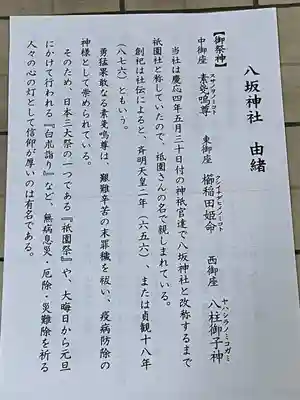 八坂神社　由緒
【御祭神】
スサノヲノミコト
中御座　素戔嗚尊
クシイナダヒメノミコト
東御座　櫛稲田姫命
ヤハシラノミコガミ
西御座　八柱御子神
当社は慶応四年五月三十日付の神祇官達で八坂神社と改称するまで
祇園社と称していたので、祇園さんの名で親しまれている。
創祀は社伝によると、斉明天皇二年（六五六）、または貞観十八年
（八七六）ともいう。
勇猛果敢なる素戔嗚尊は、艱難辛苦の末罪穢を祓い、疫病防除の
神様として崇められている。
そのため、日本三大祭の一つである『祇園祭』や、大晦日から元旦
にかけて行われる『白朮詣り』など、無病息災・厄除・災難除を祈る
人々の心の灯として信仰が厚いのは有名である。